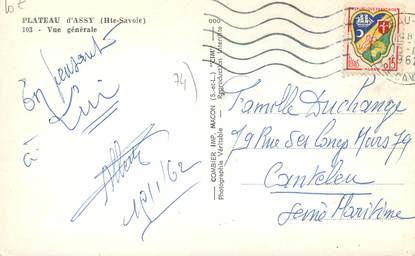 10€
PLATEAU d'ASSY (Hte-Savoie)
103 - Vue générale
En pensant
à Lui
10/1/62
74)
COMBIER IMP. MACON (S.-et-L.) "CIM"
Photographie Véritable - Reproduction Interdite
REPUBLIQUE FRANÇAISE
0,15
ALGER
Famille Duchange
79 Rue des Longs Murs 79
Canteleu
Seine Maritime